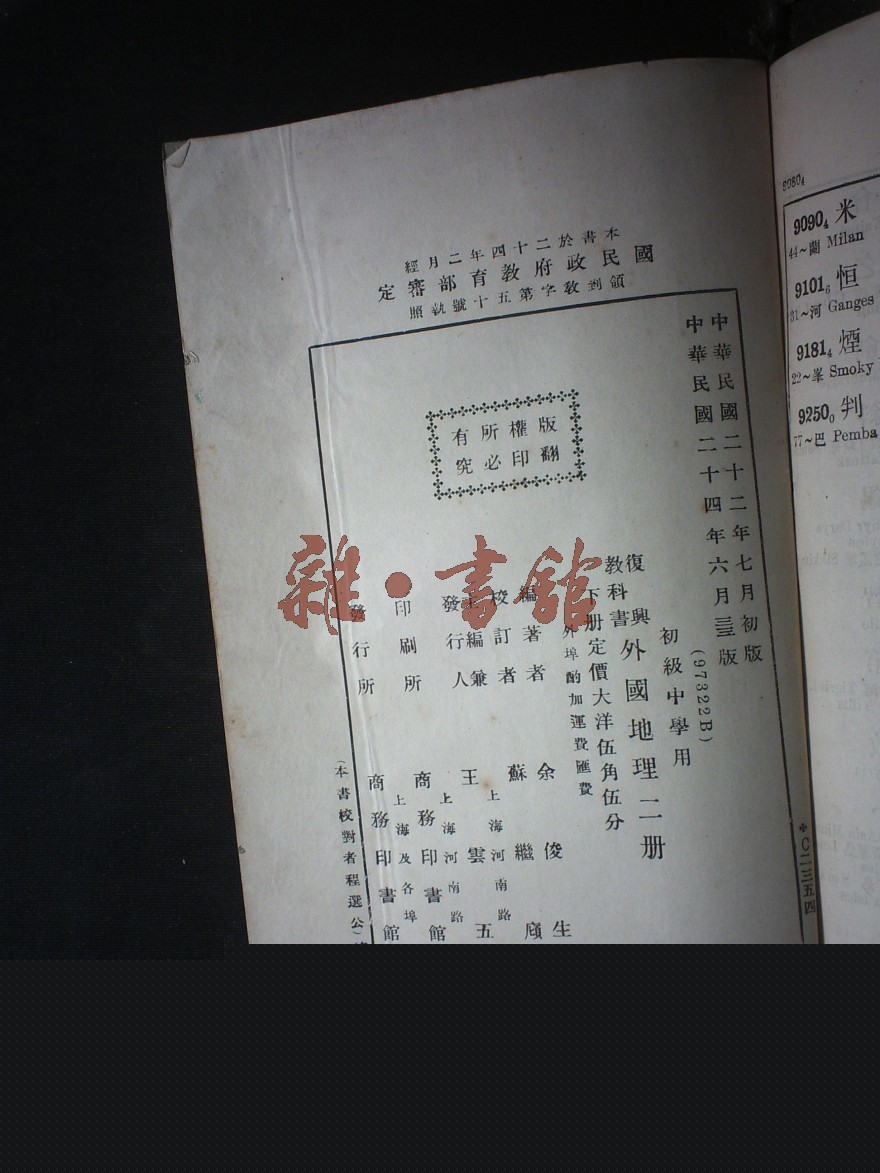 本書於二十四年二月經
國民政府教育部審定
領到教字第五十號執照
中華民國二十二年七月初版
中華民國二十四年六月三三版
(97322B)
初級中學用
復興教科書 外國地理二册
下册定價大洋伍角伍分
外埠酌加運費匯費
版權所有
翻印必究
編著者 余俊生
校訂者 蘇繼廎
主編兼發行人 王雲五
上海河南路
印刷所 商務印書館
上海河南路
發行所 商務印書館
上海及各埠
(本書校對者程選公)
*C二三五四
雜·書館
9080₄
9090₄ 米
44~蘭 Milan
9101₆ 恒
31~河 Ganges
9181₄ 煙
22~峯 Smoky
9250₀ 判
77~巴 Pemba